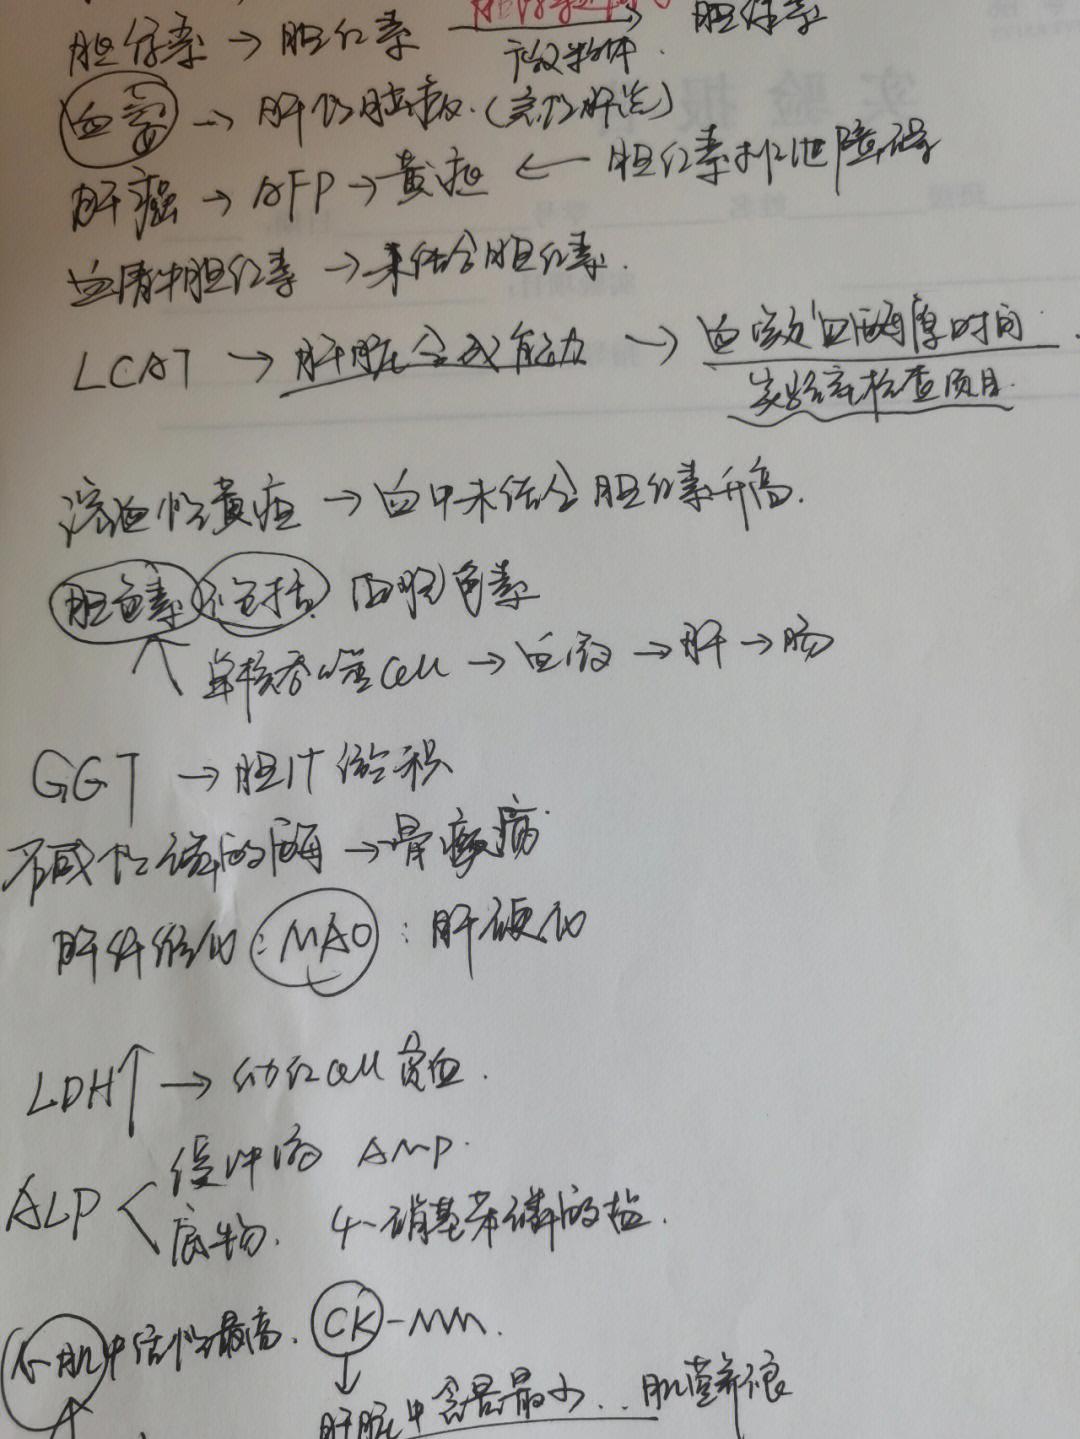 胆绿素 → 胆红素 → 胆绿素
微粒体.
血氨 → 肝性脑病.
肝癌 → AFP → 黄疸 ← 胆红素排泄障碍
血清中胆红素 → 未结合胆红素.
LCAT → 肝脏合成能力 → 血浆凝血酶原时间.
实验室检查项目.
溶血性黄疸 → 血中未结合胆红素升高.
胆色素 不包括 细胞色素
单核吞噬Cell → 血液 → 肝 → 肠
GGT → 胆汁淤积
碱性磷酸酶 → 骨
肝纤维化:MAO:肝硬化
LDH↑ → 幼红Cell贫血.
ALP < 缓冲液 AMP.
底物. 4-硝基苯磷酸盐.
心肌中活性最高. CK-MM.
↓
肝脏中含量最少... 肌营养